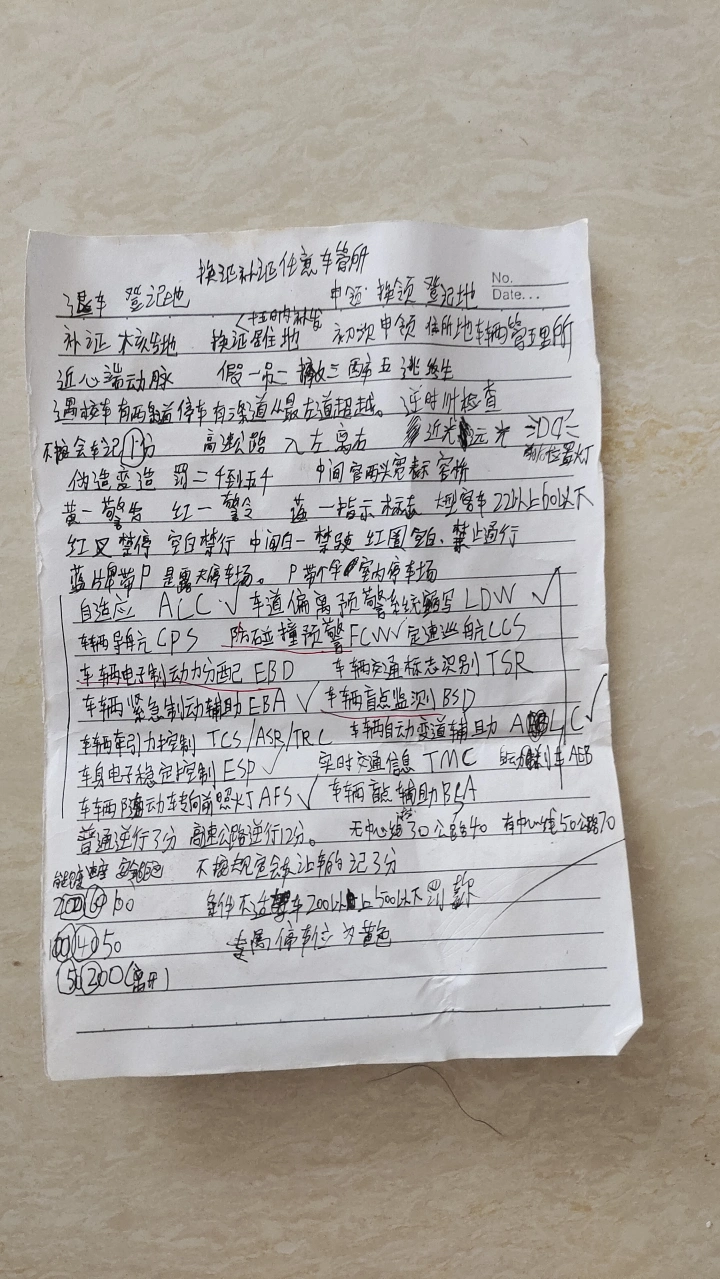 换证补证任意车管所
No.
退车 登记地 申领 换领 登记地
Date...
补证 核发地 换证居住地 初次申领 住所地车辆管理所
近心端动脉 假一吊二 撤三 醉五 逃终生
遇校车有两条道停车有三条道从最左道超越。 逆时针检查
不按会车记1分 高速公路 入左离右 近光 远光
位置灯
伪造变造 罚二千到五千 中间窄两头宽标窄桥
黄一警告 红一警令 蓝一指示标志 大型客车22以上60以下
红叉禁停 空白禁行 中间白一禁驶 红圈空白、禁止通行
蓝牌带P是露天停车场。 P带个伞室内停车场
自适应 ALC ✓ 车道偏离预警系统缩写 LDW ✓
车辆导航 GPS 防碰撞预警FCW 定速巡航CCS
车辆电子制动力分配 EBD 车辆交通标志识别 TSR
车辆紧急制动辅助 EBA ✓ 车辆盲点监测 BSD
车辆牵引力控制 TCS/ASR/TRC 车辆自动变道辅助 ALC ✓
车身电子稳定控制 ESP ✓ 实时交通信息 TMC 自动刹车 AEB
车辆随动转向前照灯 AFS ✓ 车辆盲点辅助BSA
普通逆行3分 高速公路逆行12分。 无中心线30公路40 有中心线50公路70
能见度 速度 不按规定会车让车的记3分
200 60 100 条件不适驾车200以上500以下罚款
100 40 50 专属停车位为黄色
50 20 0(离开)